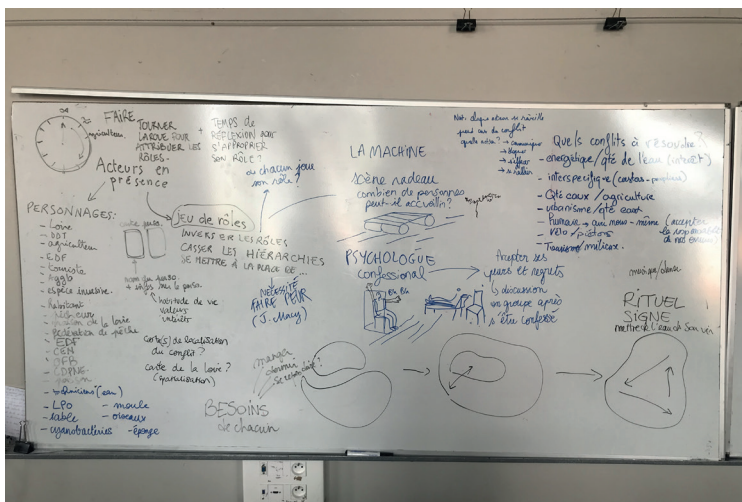 FAIRE
TOURNER
LA ROUE POUR
ATTRIBUER LES
RÔLES.
agriculteur
+ TEMPS de
RÉFLEXION POUR
S'APPROPRIER
SON RÔLE?
ou chacun joue
son rôle?
Acteurs en
présence
PERSONNAGES:
- Loire
- DDT
- agriculteur
- EDF
- touriste
- Agglo
- espèce invasive
- habitant
- pêcheur
- fédération de pêche
- EDF
- CEN
- OFB
- CDPNE
- LPO - moule
- sable - oiseaux
- cyanobactéries - éponge
carte perso.
nom du perso.
habitude de vie
valeurs
intérêt
JEU de RÔLES
INVERSER LES RÔLES
CASSER LES HIÉRARCHIES
SE METTRE À LA PLACE DE ...
NÉCESSITÉ
FAIRE PEUR
(J. Macy)
Carte(s) de localisation
du conflit?
carte de la Loire?
(spatialisation)
manger
dormir
BESOINS
de chacun
LA MACHINE
scène radeau
combien de personnes
peut-il accueillir?
PSYCHOLOGUE
confessional
Bla Bla
chapter ses
peurs et regrets
↳ discussion
en groupe après
s'être confessé
quand cas de conflit
→ communiquer
→ fuir
Quels conflits à résoudre?
- énergétique / qté de l'eau (intérêt)
- interspécifique
- Qté eaux / agriculture
- urbanisme / qté eaux
- Humain → avec nous-même (accepter
la responsabilité
de nos erreurs)
- Vélo / piétons
- Tourisme / milieux.
musique / danse
RITUEL
SIGNE
mettre de l'eau dans son vin